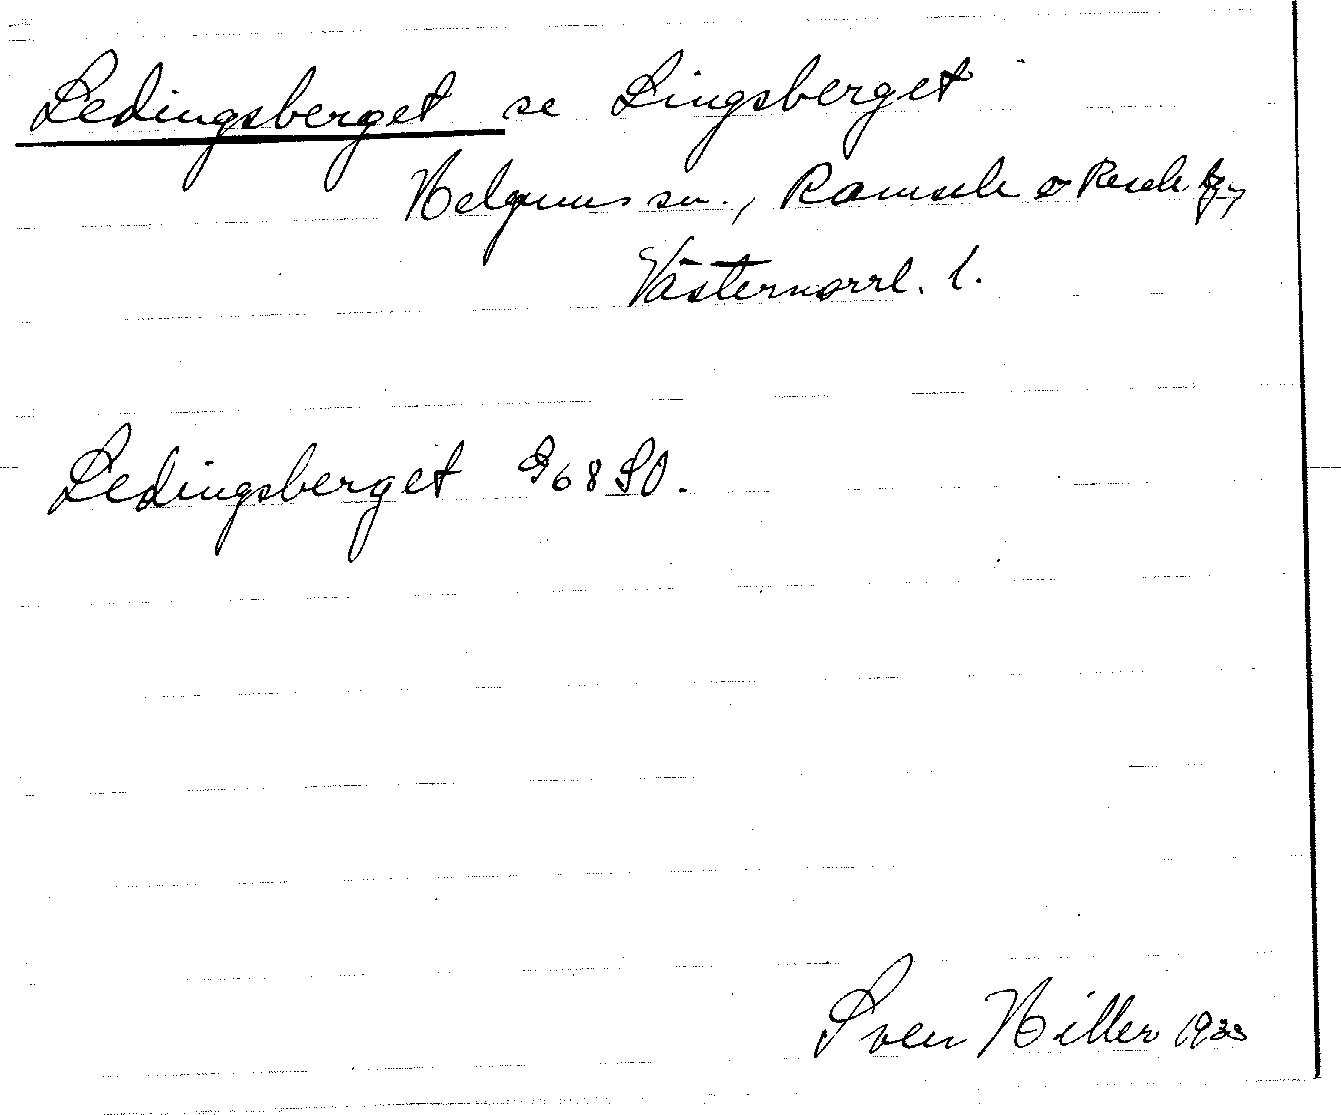 Ledingsberget se Lingsberget
Helgums sn., Ramsele o Resele tg,
Västernorrl. l.
Ledingsberget G68SO.
Sven Hiller 1933